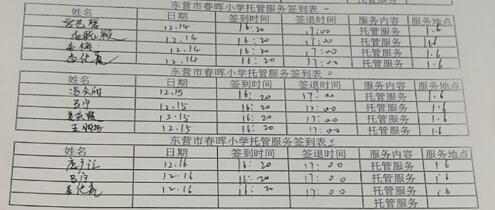 东营市春晖小学托管服务签到表
姓名 日期 签到时间 签退时间 服务内容 服务地点
12.14 16:20 17:00 托管服务 1.6
12.14 16:20 17:00 托管服务 1.6
12.14 16:20 17:00 托管服务 1.6
12.14 16:20 17:00 托管服务 1.6
东营市春晖小学托管服务签到表
姓名 日期 签到时间 签退时间 服务内容 服务地点
12.15 16:20 17:00 托管服务 1.6
马宁 12.15 16:20 17:00 托管服务 1.6
12.15 16:20 17:00 托管服务 1.6
12.15 16:20 17:00 托管服务 1.6
东营市春晖小学托管服务签到表
姓名 日期 签到时间 签退时间 服务内容 服务地点
12.16 16:20 17:00 托管服务 1.6
马宁 12.16 16:20 17:00 托管服务 1.6
12.16 16:20 17:00 托管服务 1.6